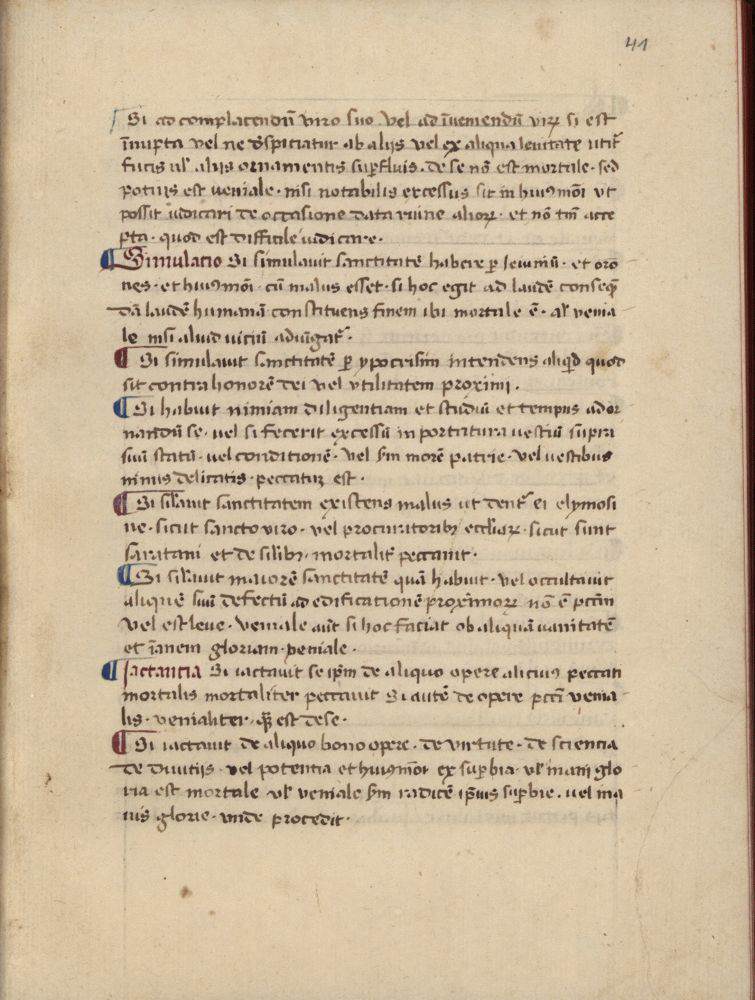 41
Si ad complacendū viro suo vel ad īveniendū virū si est
īnupta vel ne despiciatur ab alijs vel ex aliqua levitate utit̄
fucis ul' alijs ornamentis supfluis. de se nō est mortale. sed
potius est veniale. nisi notabilis excessus sit in huiꝰmōi vt
possit iudicari de occasione data ruine alioꝝ. et nō tm̄ acce
pta. quod est difficile iudicare.
Simulacio Si simulauit sanctitatē habere ꝑ ieiuniū. et oro
nes. et huiꝰmōi. cū malus esset. si hoc egit ad laudē conseq̄
dā laudē humanā constituens finem ibi mortale ē. al' venia
le nisi aliud viciū adiūgat̄.
Si simulauit sanctitatē ꝑ ypocrisim intendens aliqd quod
sit contra honorē dei vel vtilitatem proximi.
Si habuit nimiam diligentiam et studiū et tempus ad or
nandū se. vel si fecerit excessū in portatura uestiū supra
suū statū. vel conditionē. vel scd'm morē patrie. vel vestibus
nimis delicatis. peccatū est.
Si sil'auit sanctitatem existens malus ut dent̄ ei elymosi
ne. sicut sancto viro. vel procuratoribꝫ eccl'iaꝝ. sicut sunt
saratani et de silibꝫ. mortalit̄ peccauit.
Si sil'auit maiorē sanctitatē quā habuit. vel occultauit
aliquē suū defectū ad edificationē proximoꝝ nō ē pccm̄
vel est leve. veniale aut̄ si hoc faciat ob aliquā uanitatē
et īanem gloriam. veniale.
Jactancia Si iactauit se ip̄m de aliquo opere alicuiꝰ peccati
mortalis mortaliter peccauit Si autē de opere pcc̄i venia
lis. venialiter. qꝫ est de se.
Si iactauit de aliquo bono opere. de virtute. de sciencia
de diuitijs. vel potentia et huiꝰmōi ex supbia. vl' inani glo
ria est mortale vl' veniale scd'm radicē ip̄ius supbie. uel ina
nis glorie. vnde procedit.